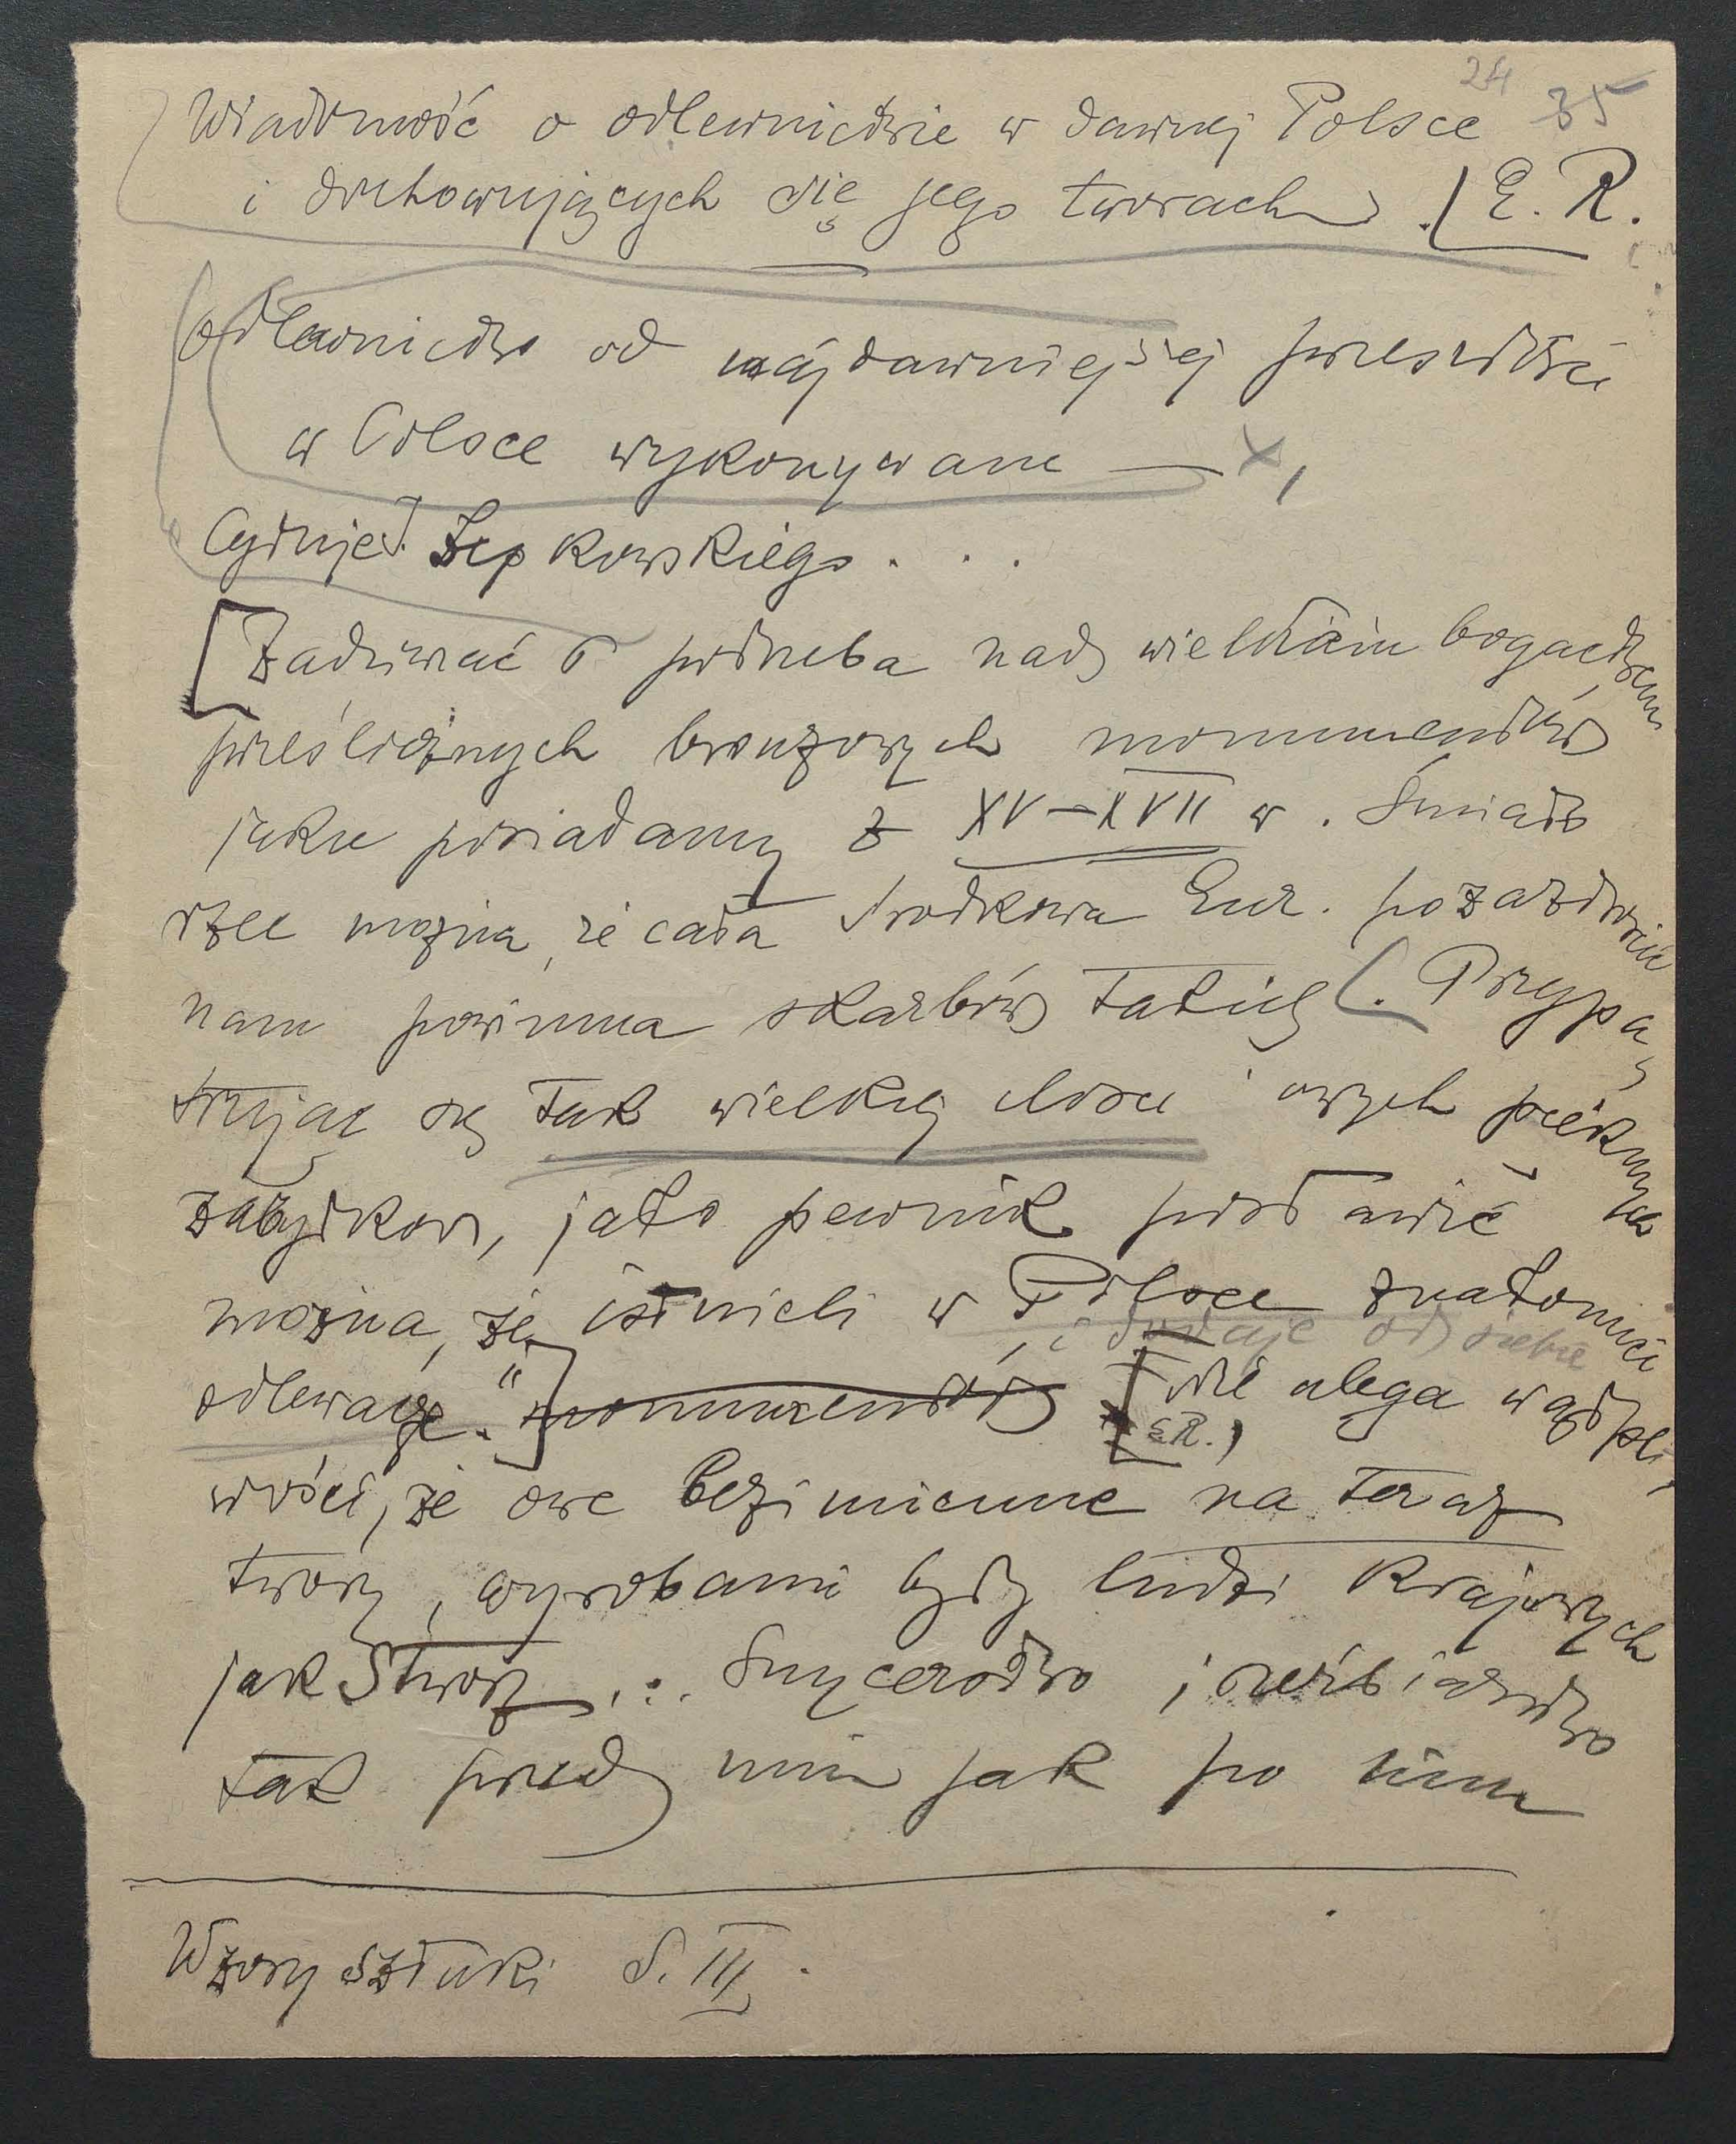 24 35
Wiadomość o odlewnictwie w dawnej Polsce
i dochowujących się jego tworach. [E. R.
Odlewnictwo od najdawniejszej przeszłości
w Polsce wykonywane — x,
Cytuje J. Łepkowskiego . . .
[Zadziwiać potrzeba nad wielkiem bogactwem
prześlicznych bronzowych monumentów
jakie posiadamy z XV–XVII w. Śmiało
rzec można, że cała środkowa Eur. pozazdrościć
nam powinna skarbów takich. [Przypa
trując się tak wielkiej ilości owych pięknych
zabytków, jako pewnik postawić
można, że istnieli w Polsce znakomici
, i dodaje od siebie
odlewacze." ] monumentów [nie ulega wątpli
E R.)
wości, że owe bezimienne na teraz
twory, wyrobami były ludzi krajowych
jak Stwosz ... Snycerstwo i rzeźbiarstwo
tak przed nim jak po nim
Wzory sztuki S. III.